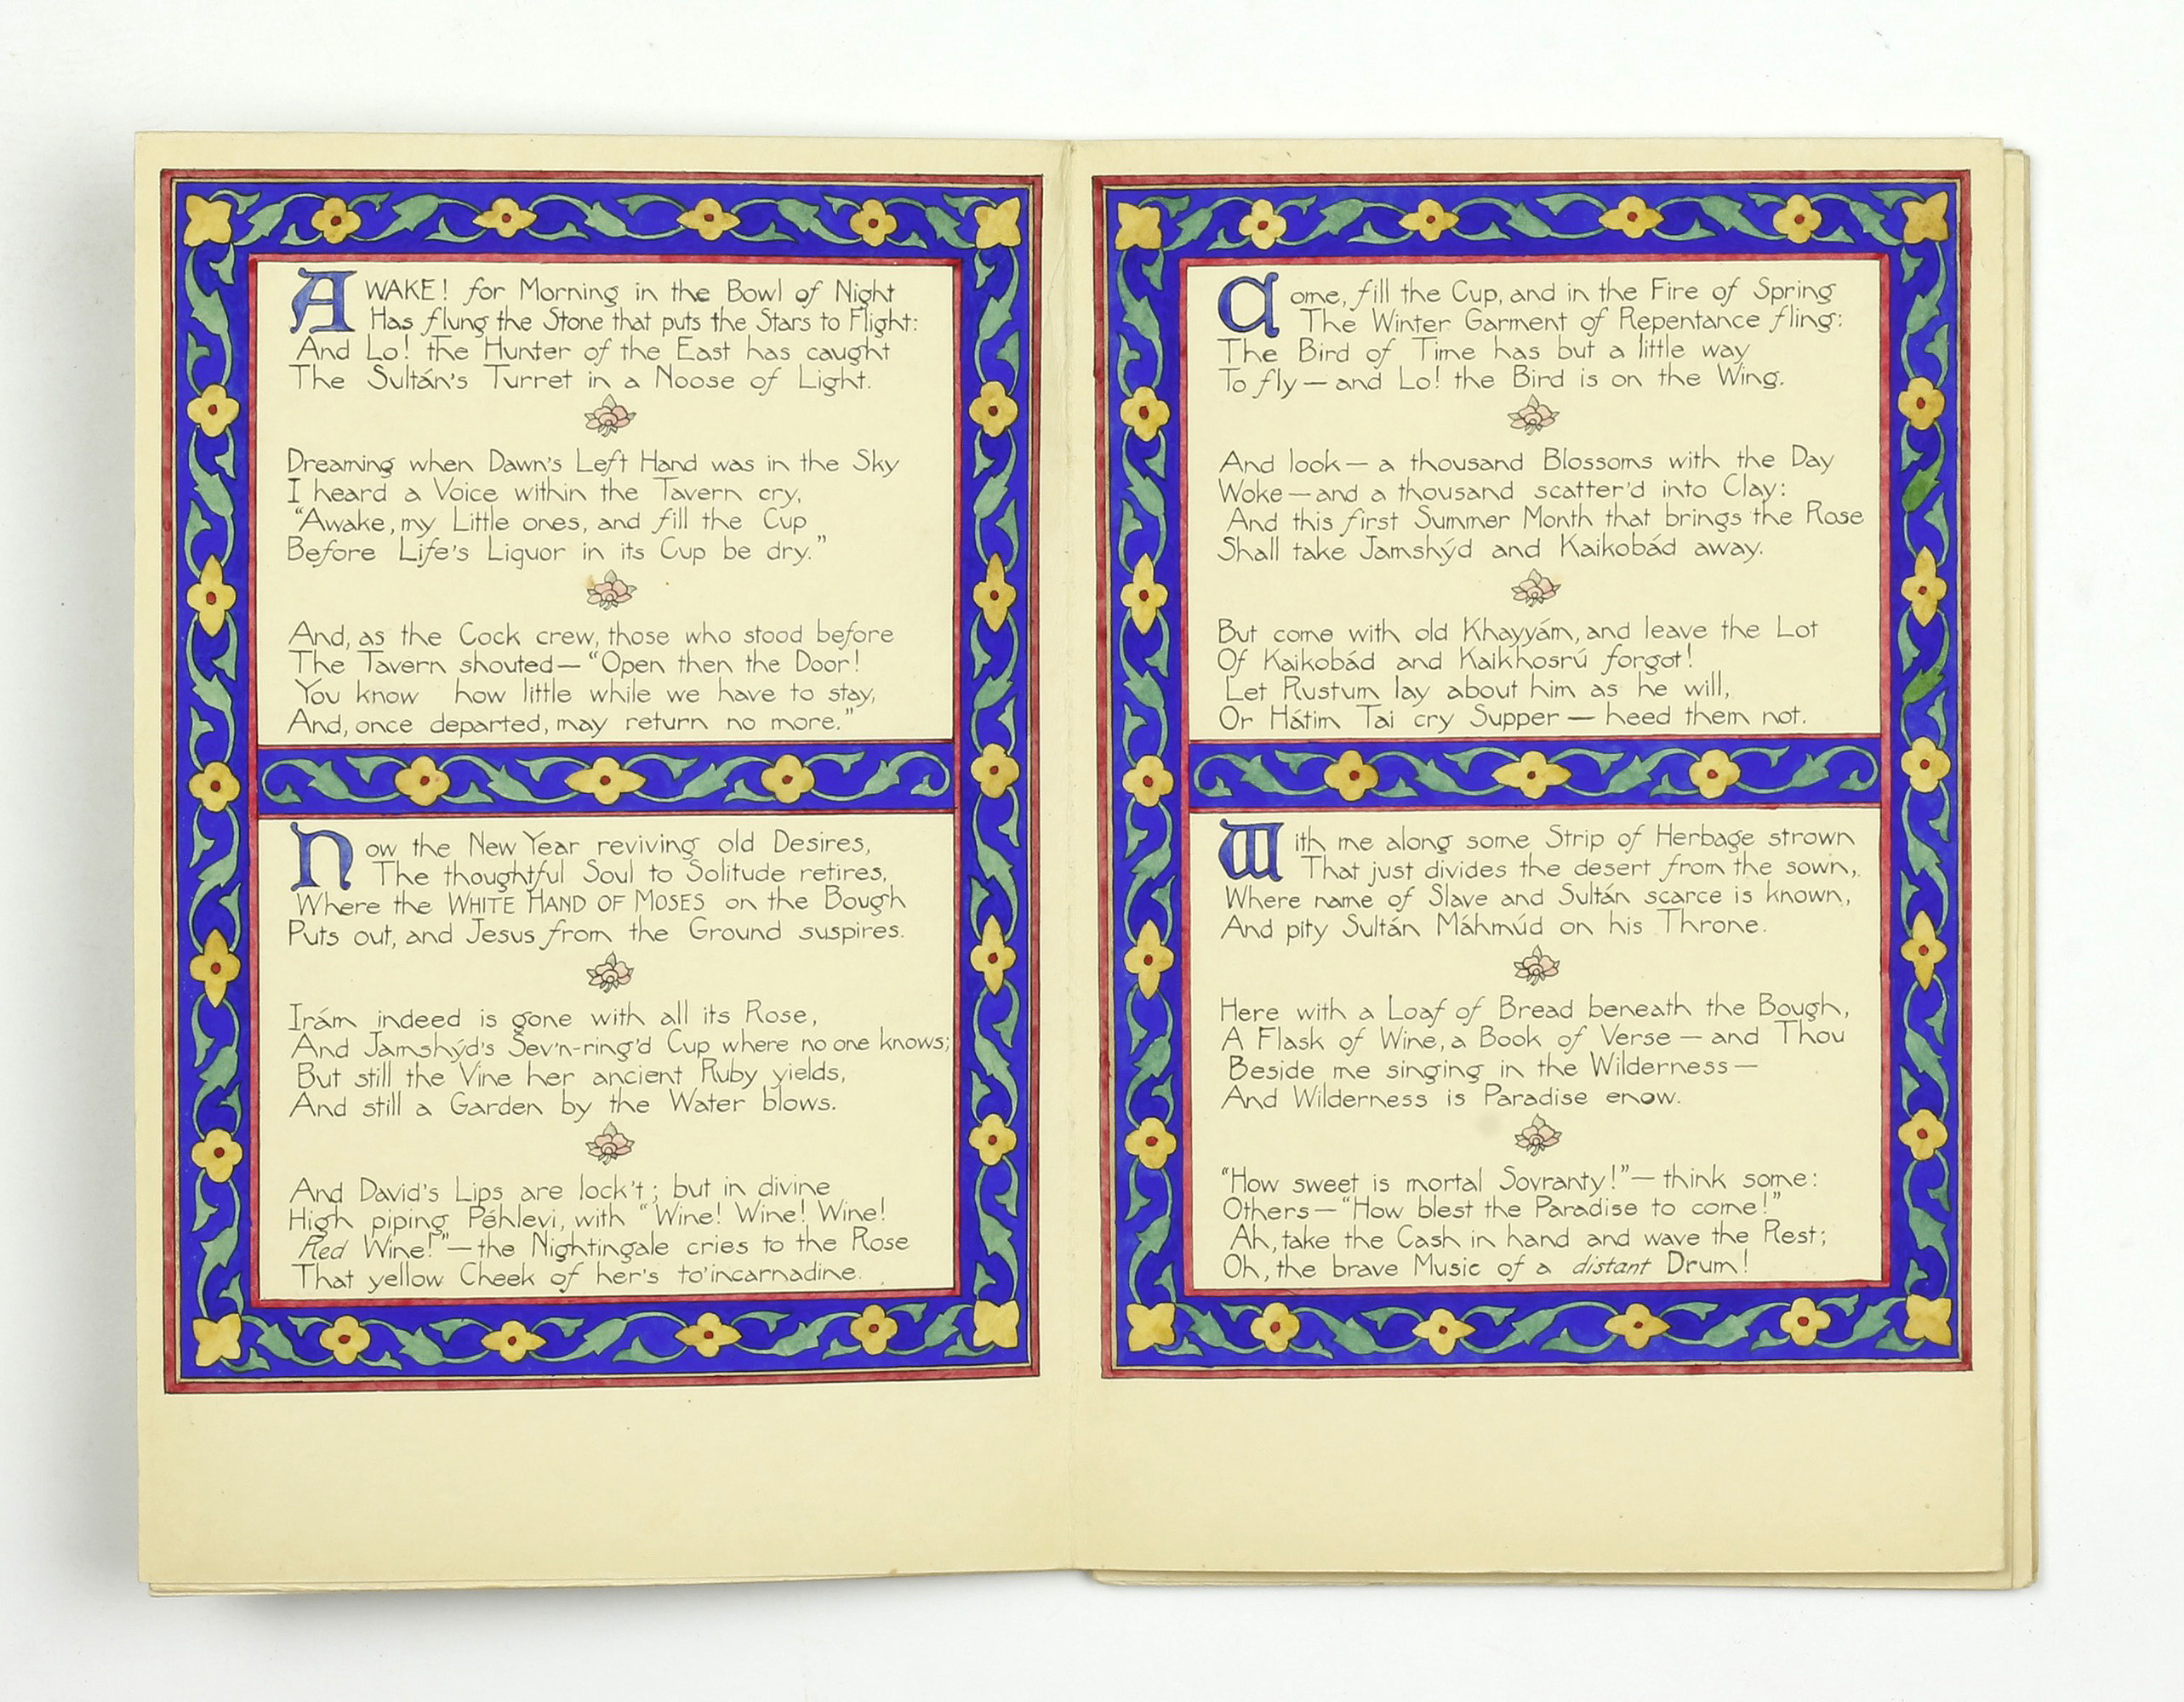 AWAKE! for Morning in the Bowl of Night
Has flung the Stone that puts the Stars to Flight:
And Lo! the Hunter of the East has caught
The Sultán's Turret in a Noose of Light.
Dreaming when Dawn's Left Hand was in the Sky
I heard a Voice within the Tavern cry,
"Awake, my Little ones, and fill the Cup
Before Life's Liquor in its Cup be dry."
And, as the Cock crew, those who stood before
The Tavern shouted—"Open then the Door!
You know how little while we have to stay,
And, once departed, may return no more."
Now the New Year reviving old Desires,
The thoughtful Soul to Solitude retires,
Where the WHITE HAND OF MOSES on the Bough
Puts out, and Jesus from the Ground suspires.
Irám indeed is gone with all its Rose,
And Jamshýd's Sev'n-ring'd Cup where no one knows;
But still the Vine her ancient Ruby yields,
And still a Garden by the Water blows.
And David's Lips are lock't; but in divine
High piping Péhlevi, with "Wine! Wine! Wine!
Red Wine!"—the Nightingale cries to the Rose
That yellow Cheek of her's to'incarnadine.
Come, fill the Cup, and in the Fire of Spring
The Winter Garment of Repentance fling:
The Bird of Time has but a little way
To fly—and Lo! the Bird is on the Wing.
And look—a thousand Blossoms with the Day
Woke—and a thousand scatter'd into Clay:
And this first Summer Month that brings the Rose
Shall take Jamshýd and Kaikobád away.
But come with old Khayyám, and leave the Lot
Of Kaikobád and Kaikhosrú forgot!
Let Rustum lay about him as he will,
Or Hátim Tai cry Supper—heed them not.
With me along some Strip of Herbage strown
That just divides the desert from the sown,
Where name of Slave and Sultán scarce is known,
And pity Sultán Máhmúd on his Throne.
Here with a Loaf of Bread beneath the Bough,
A Flask of Wine, a Book of Verse—and Thou
Beside me singing in the Wilderness—
And Wilderness is Paradise enow.
"How sweet is mortal Sovranty!"—think some:
Others—"How blest the Paradise to come!"
Ah, take the Cash in hand and wave the Rest;
Oh, the brave Music of a distant Drum!